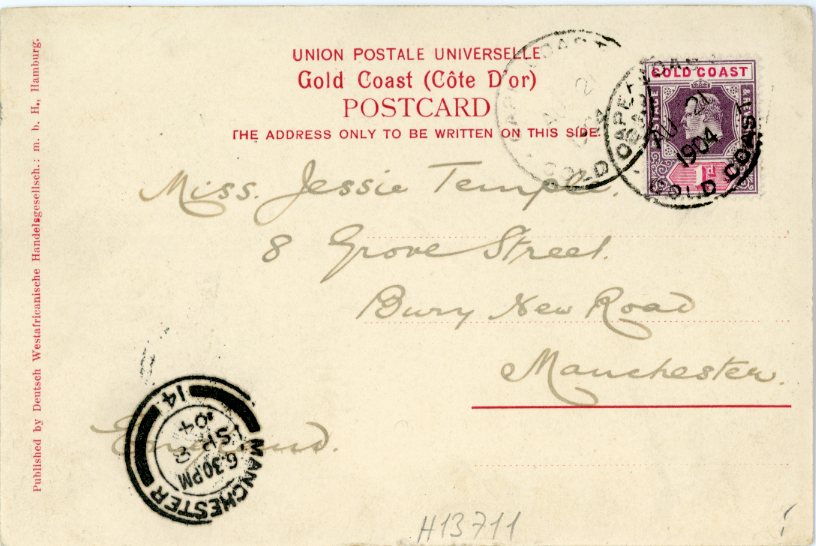 UNION POSTALE UNIVERSELLE
Gold Coast (Côte D'or)
POSTCARD
THE ADDRESS ONLY TO BE WRITTEN ON THIS SIDE
GOLD COAST
POSTAGE
1d
CAPE COAST
AU 21
1904
GOLD COAST
CAPE COAST
GOLD
Miss. Jessie Temple.
8 Grove Street.
Bury New Road
Manchester.
England.
MANCHESTER
6.30PM
SP 8
04
14
Published by Deutsch Westafricanische Handelsgesellsch.: m. b. H., Hamburg.
H13711